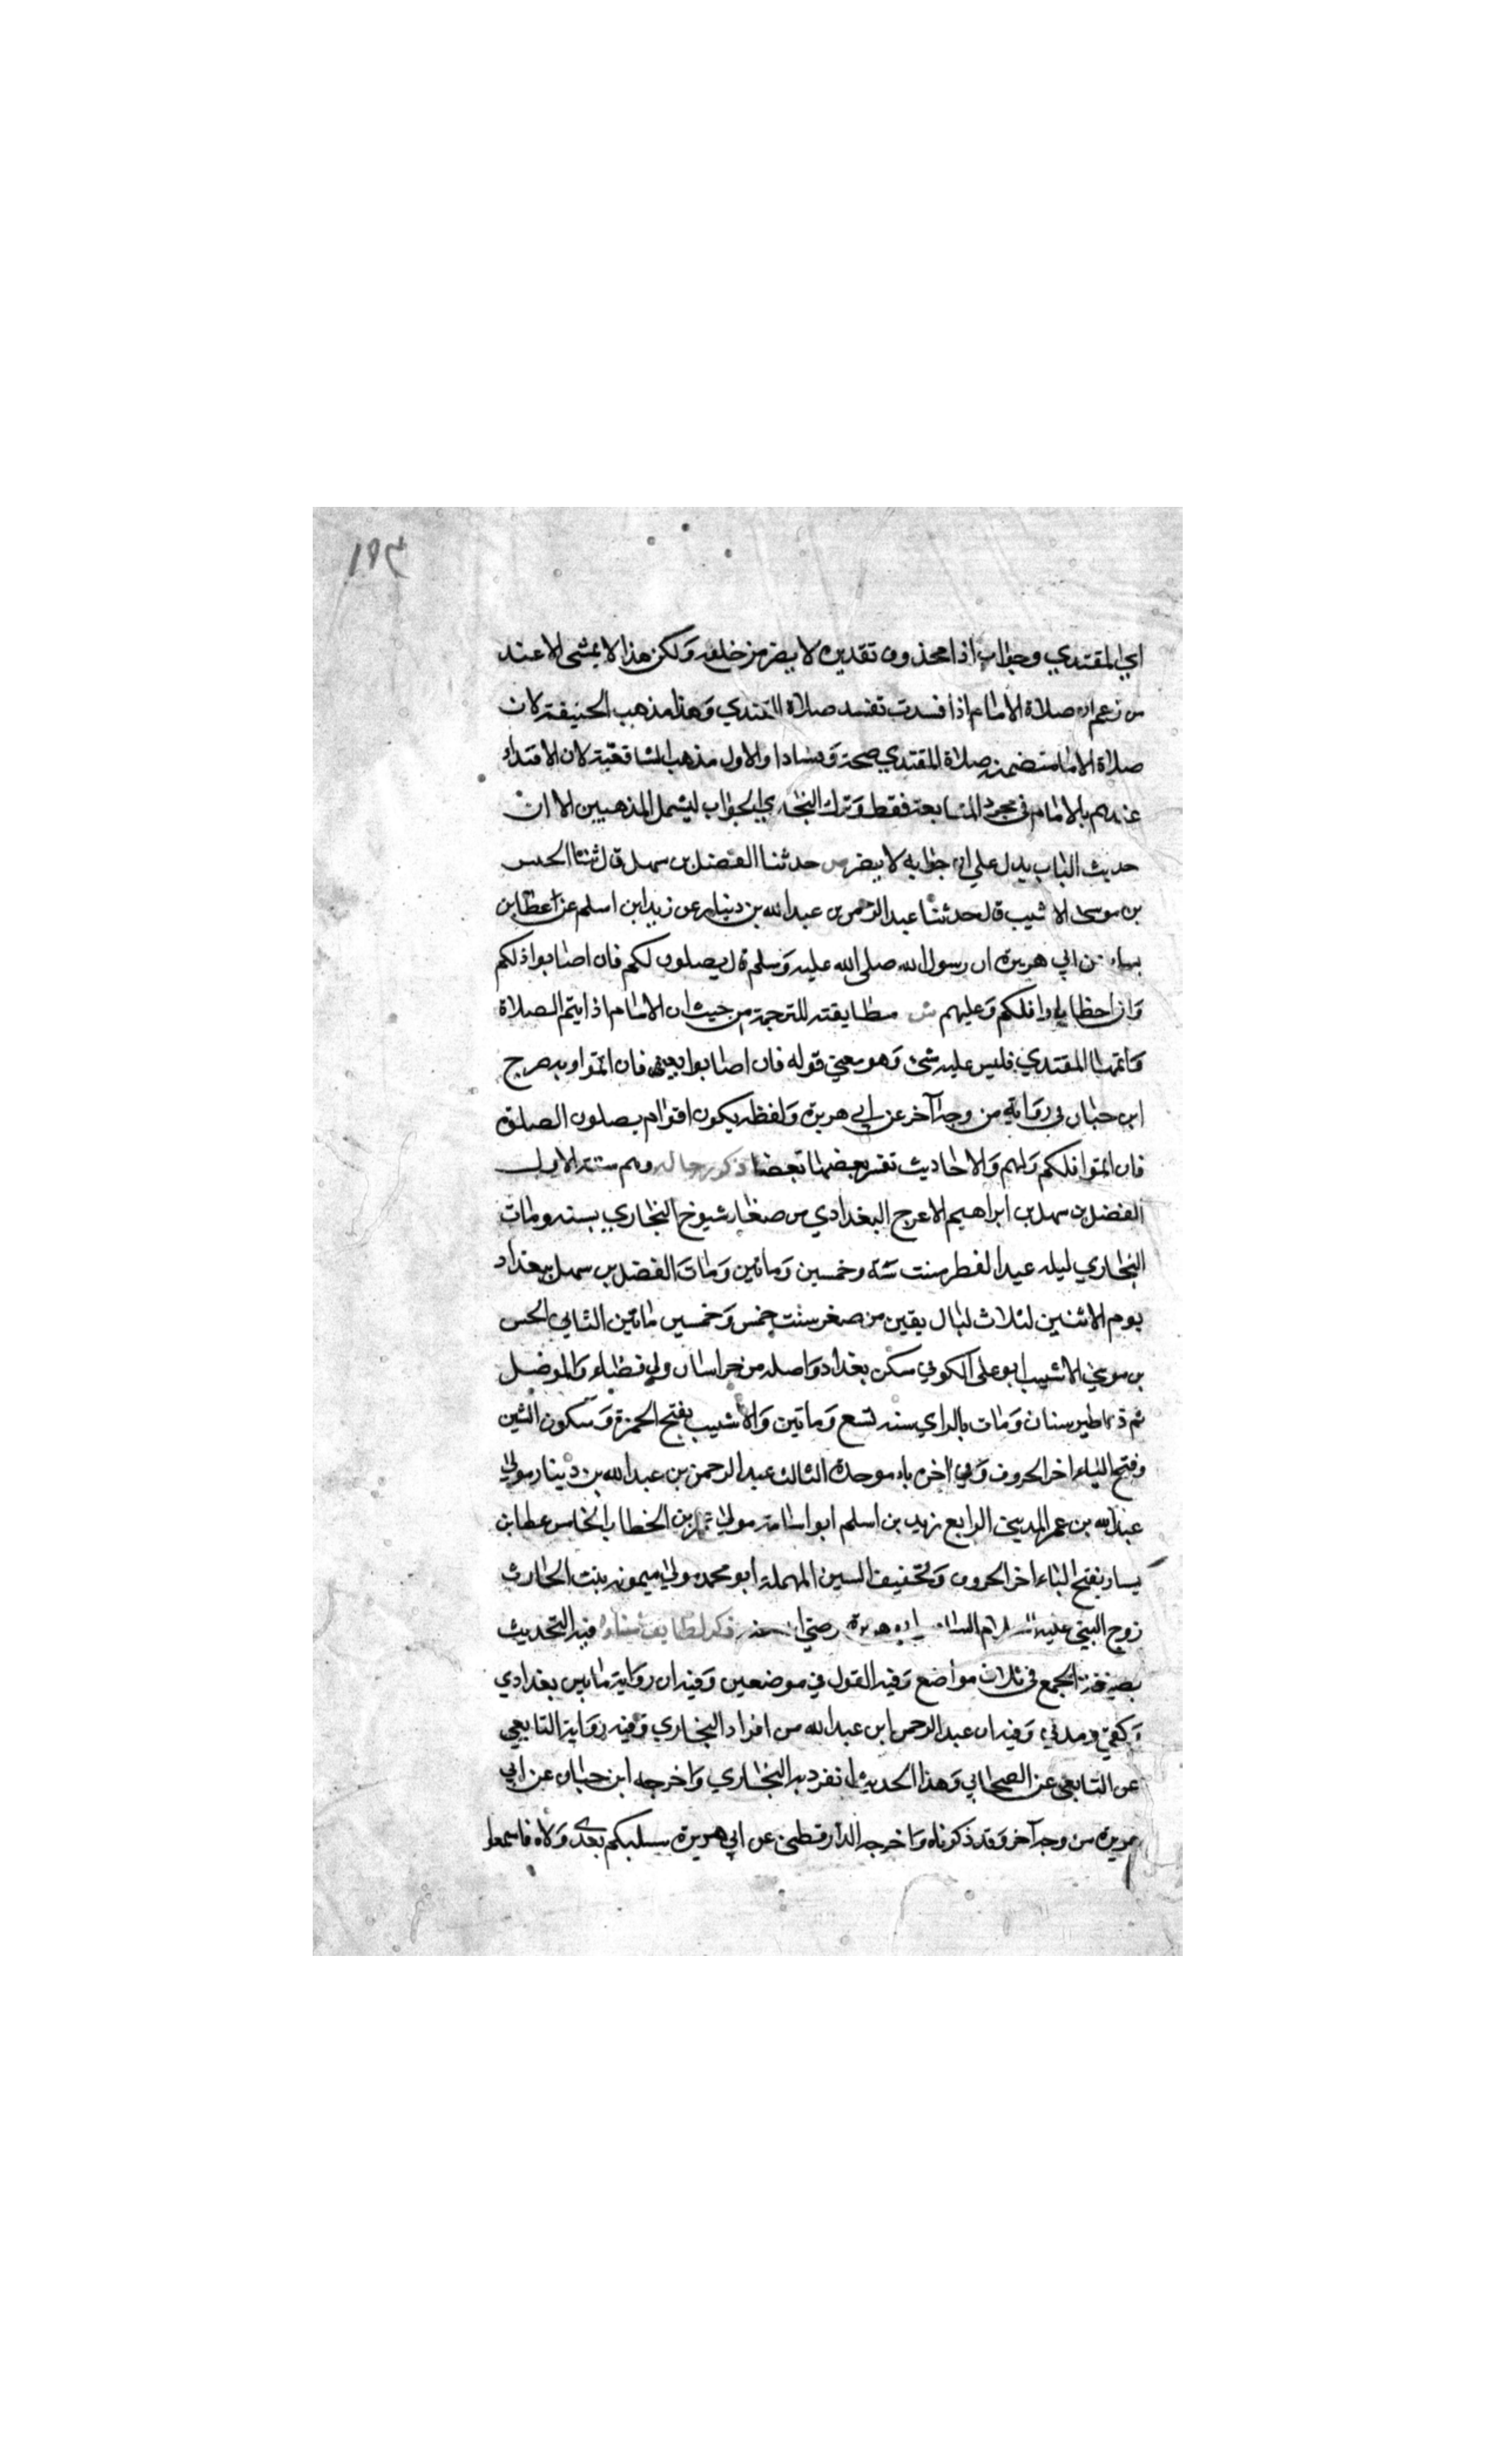 ١٩٣
اي المقتدي وجواب اذا محذوف تقديره لا يضر من خلفه ولكن هذا لا يمشي الا عند
من زعم ان صلاة الامام اذا فسدت تفسد صلاة المقتدي وهذا مذهب الحنيفة لان
صلاة الامام متضمنة صلاة المقتدي صحة وفسادا والاول مذهب الشافعية لان الاقتداء
عندهم بالامام في مجرد المتابعة فقط وترك البخاري الجواب ليشمل المذهبين الا ان
حديث الباب يدل على ان جوابه لا يضر ص حدثنا الفضل بن سهل قال ثنا الحسن
بن موسى الاشيب قال حدثنا عبد الرحمن بن عبد الله بن دينار عن زيد ابن اسلم عن عطا بن
يسار عن ابي هريرة ان رسول الله صلى الله عليه وسلم قال يصلون لكم فان اصابوا فلكم
وان اخطاوا فلكم وعليهم ش مطابقته للترجمة من حيث ان الامام اذا لم يتم الصلاة
واتمها المقتدي فليس عليه شئ وهو معني قوله فان اصابوا يعني فان اتموا وبه صرح
ابن حبان في رواية من وجه آخر عن ابي هريرة ولفظه يكون اقوام يصلون الصلوة
فان اتموا فلكم ولهم والاحاديث تفسر بعضها بعضا ذكر رجاله وهم ستة الاول
الفضل بن سهل بن ابراهيم الاعرج البغدادي من صغار شيوخ البخاري بسنه ومات
البخاري ليلة عيد الفطر سنت ستة وخمسين وماتين ومات الفضل بن سهل ببغداد
يوم الاثنين لثلاث ليال بقين من صفر سنت خمس وخمسين ماتين الثاني الحسن
بن موسي الاشيب ابو على الكوفي سكن بغداد واصله من خراسان ولي قضاء والموصل
ثم طبرستان ومات بالراي سنه تسع وماتين والاشيب بفتح الهمزة وسكون الشين
وفتح الياء اخر الحروف وفي اخره باء موحدة الثالث عبد الرحمن بن عبد الله بن دينار مولى
عبد الله بن عمر المديني الرابع زيد بن اسلم ابو اسامة مولى عمر بن الخطاب الخامس عطا بن
يسار بفتح الياء اخر الحروف وتخفيف السين المهملة ابو محمد مولى ميمونه بنت الحارث
زوج النبي عليه السلام السادس ابو هريرة رضي الله عنه ذكر لطايف اسناده فيه التحديث
بصيغة الجمع في ثلاث مواضع وفيه القول في موضعين وفيه ان رواية ما بين بغدادي
وكوفي ومدني وفيه ان عبد الرحمن ابن عبد الله من افراد البخاري وفيه رواية التابعي
عن التابعي عن الصحابي وهذا الحديث انفرد به البخاري واخرجه ابن حبان عن ابي
هريرة من وجه آخر وقد ذكرناه واخرجه الدارقطني عن ابي هريرة سيليكم بعدي ولاه فاسمعوا